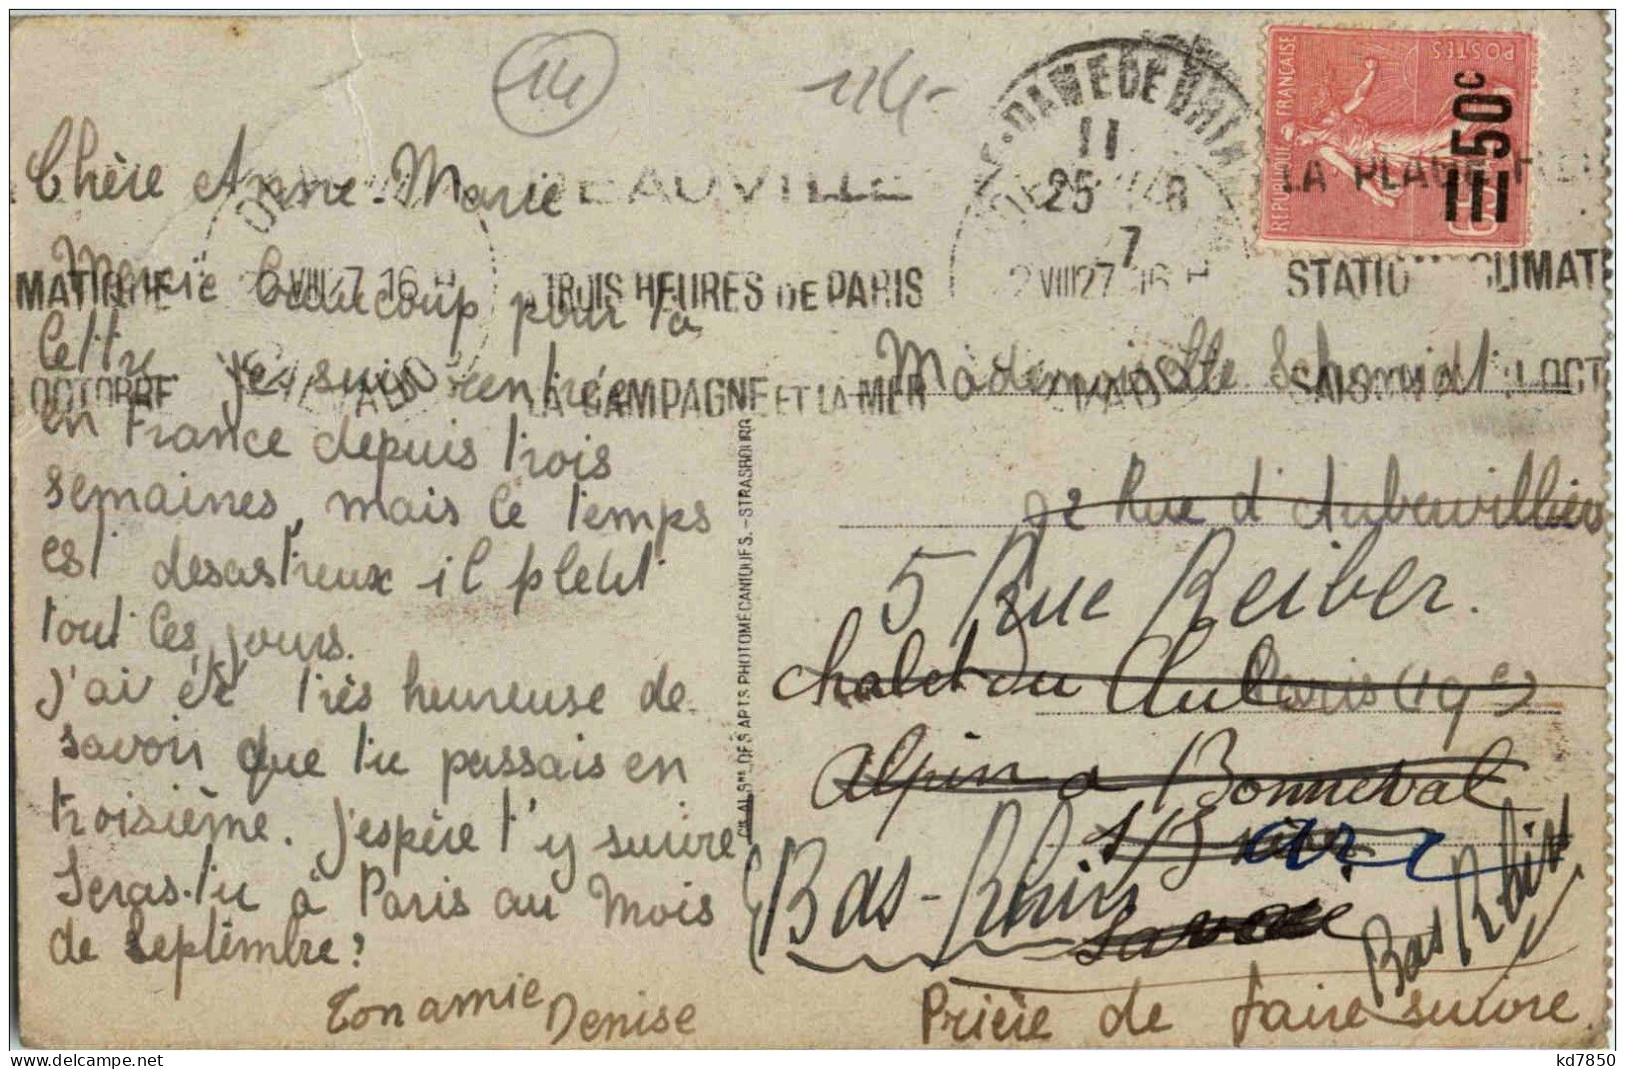 14
114-
Chère Anne-Marie
Mercie beaucoup pour la
lettre. Je suis rentrée
en France depuis trois
semaines, mais le temps
est desastreux il pleut
tout les jours.
J'ai été très heureuse de
savoir que tu passais en
troisième. J'espère t'y suivre
Seras-tu à Paris au mois
de Septembre?
Ton amie Denise
DEAUVILLE
LA PLAGE
TROIS HEURES DE PARIS
LA CAMPAGNE ET LA MER
STATION CLIMAT
SAISON
OCTOBRE
DAME DE
11
25 - 8
7
2 VIII 27 16 H
REPUBLIQUE FRANCAISE
POSTES
65c
50c
Mademoiselle Schmidt
92 Rue d'Aubervilliers
5 Rue Reiber.
Paris (19e)
Chalet du Club
Alpin à Bonneval
s/Arc
Savoie
Bas-Rhin
Bas Rhin
Prière de faire suivre
CIE ALSNE DES ARTS PHOTOMÉCANIQUES.-STRASBOURG
kd7850